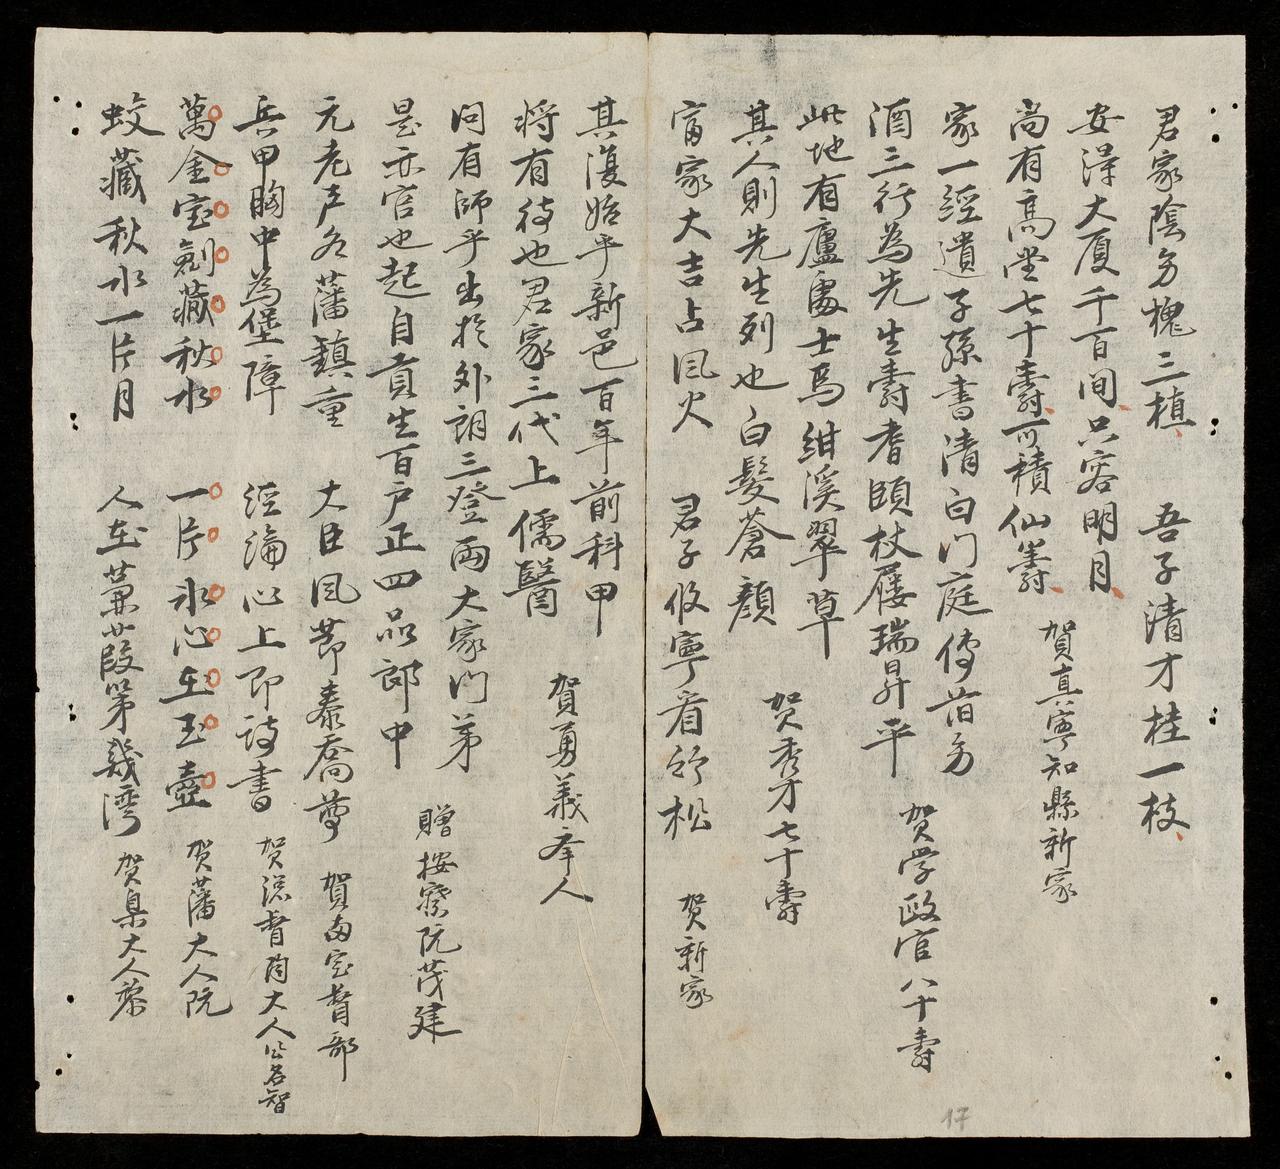 君家陰多槐三植 吾子清才桂一枝
安得大厦千百间只容明月
尚有高堂七十壽可積仙籌 賀真寧知縣新家
家一經遺子孫書清白门庭傳笏多
酒三行為先生壽耆頤杖屨瑞昇平 贺学政官八十壽
此地有廬處士焉紺溪翠草
其人則先生列也白髮蒼顔 贺秀才七十壽
富家大吉占风火 君子攸寧看竹松 贺新家
其復始乎新邑百年前科甲
将有待也君家三代上儒醫 賀勇義奉人
问有師乎出於外朗三登兩大家门弟
是亦官也起自貢生百户正四品郎中 贈按察阮茂建
元老声名藩鎮重 大臣风節泰喬尊 賀南定督部
兵甲胸中為堡障 經綸心上即詩書 贺总督陶大人公名智
萬金宝劍藏秋水 一片冰心在玉壺 贺藩大人阮
蛟藏秋水一片月 人在蒹葭第幾湾 贺臬大人黎
17